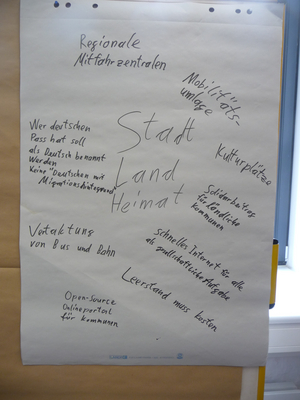 Regionale
Mitfahrzentralen
Mobilitäts-
umlage
Stadt
Land
Heimat
Kulturplätze
Wer deutschen
Pass hat soll
als Deutsch benannt
werden
Keine "Deutschen mit
Migrationshintergrund"
Solidarbeitrag
für ländliche
Kommunen
Vertaktung
von Bus und Bahn
schnelles Internet für alle
als gesellschaftliche Aufgabe
Leerstand muss kosten
Open-Source
Onlineportal
für Kommunen